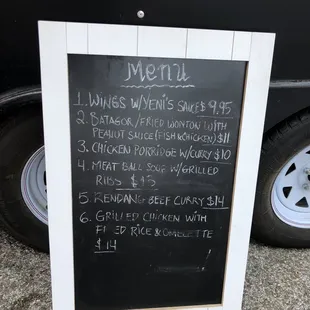 Menu
1. WINGS W/YENI'S SAUCE $ 9.95
2. BATAGOR/FRIED WONTON WITH
PEANUT SAUCE (FISH & CHICKEN) $11
3. CHICKEN PORRIDGE W/CURRY $10
4. MEAT BALL SOUP W/GRILLED
RIBS $15
5 RENDANG BEEF CURRY $14
6. GRILLED CHICKEN WITH
FRIED RICE & OMELETTE
$14